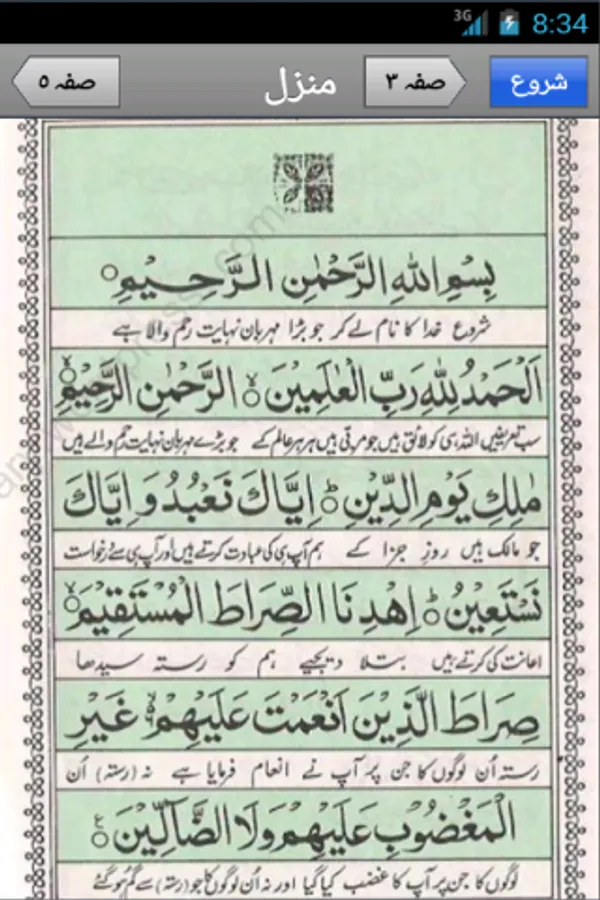 3G 8:34
شروع
صفہ ۳
منزل
صفہ ۵
بِسْمِ اللهِ الرَّحْمٰنِ الرَّحِيْمِ○
شروع خدا کا نام لے کر جو بڑا مہربان نہایت رحم والا ہے
اَلْحَمْدُ لِلّٰهِ رَبِّ الْعٰلَمِيْنَ○ۙ الرَّحْمٰنِ الرَّحِيْمِ○ۙ
سب تعریفیں اللہ ہی کو لائق ہیں جو مربّی ہیں ہر ہر عالم کے جو بڑے مہربان نہایت رحم والے ہیں
مٰلِكِ يَوْمِ الدِّيْنِ○ؕ اِيَّاكَ نَعْبُدُ وَ اِيَّاكَ
جو مالک ہیں روزِ جزا کے ہم آپ ہی کی عبادت کرتے ہیں اور آپ ہی سے درخواست
نَسْتَعِيْنُ○ؕ اِهْدِنَا الصِّرَاطَ الْمُسْتَقِيْمَ○ۙ
اعانت کی کرتے ہیں بتلا دیجیے ہم کو رستہ سیدھا
صِرَاطَ الَّذِيْنَ اَنْعَمْتَ عَلَيْهِمْ غَيْرِ
رستہ اُن لوگوں کا جن پر آپ نے انعام فرمایا ہے نہ (رستہ) اُن
الْمَغْضُوْبِ عَلَيْهِمْ وَلَا الضَّآلِّيْنَ○ع
لوگوں کا جن پر آپ کا غضب کیا گیا اور نہ اُن لوگوں کا جو (رستہ) سے گم ہو گئے